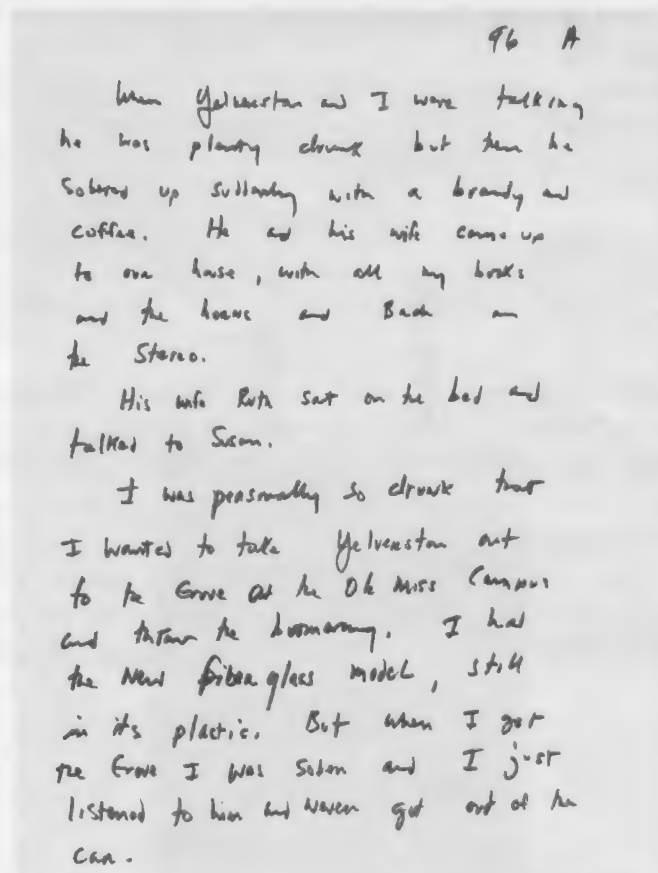 96 A
When Yelverston and I were talking
he was plenty drunk but then he
sobered up suddenly with a brandy and
coffee. He and his wife came up
to our house, with all my books
and the horns and Bach on
the Stereo.
His wife Ruth sat on the bed and
talked to Susan.
I was personally so drunk that
I wanted to take Yelverston out
to the Grove at the Ole Miss Campus
and throw the boomerang. I had
the New fiberglass model, still
in its plastic. But when I got
the Grove I was sober and I just
listened to him and never got out of the
car.